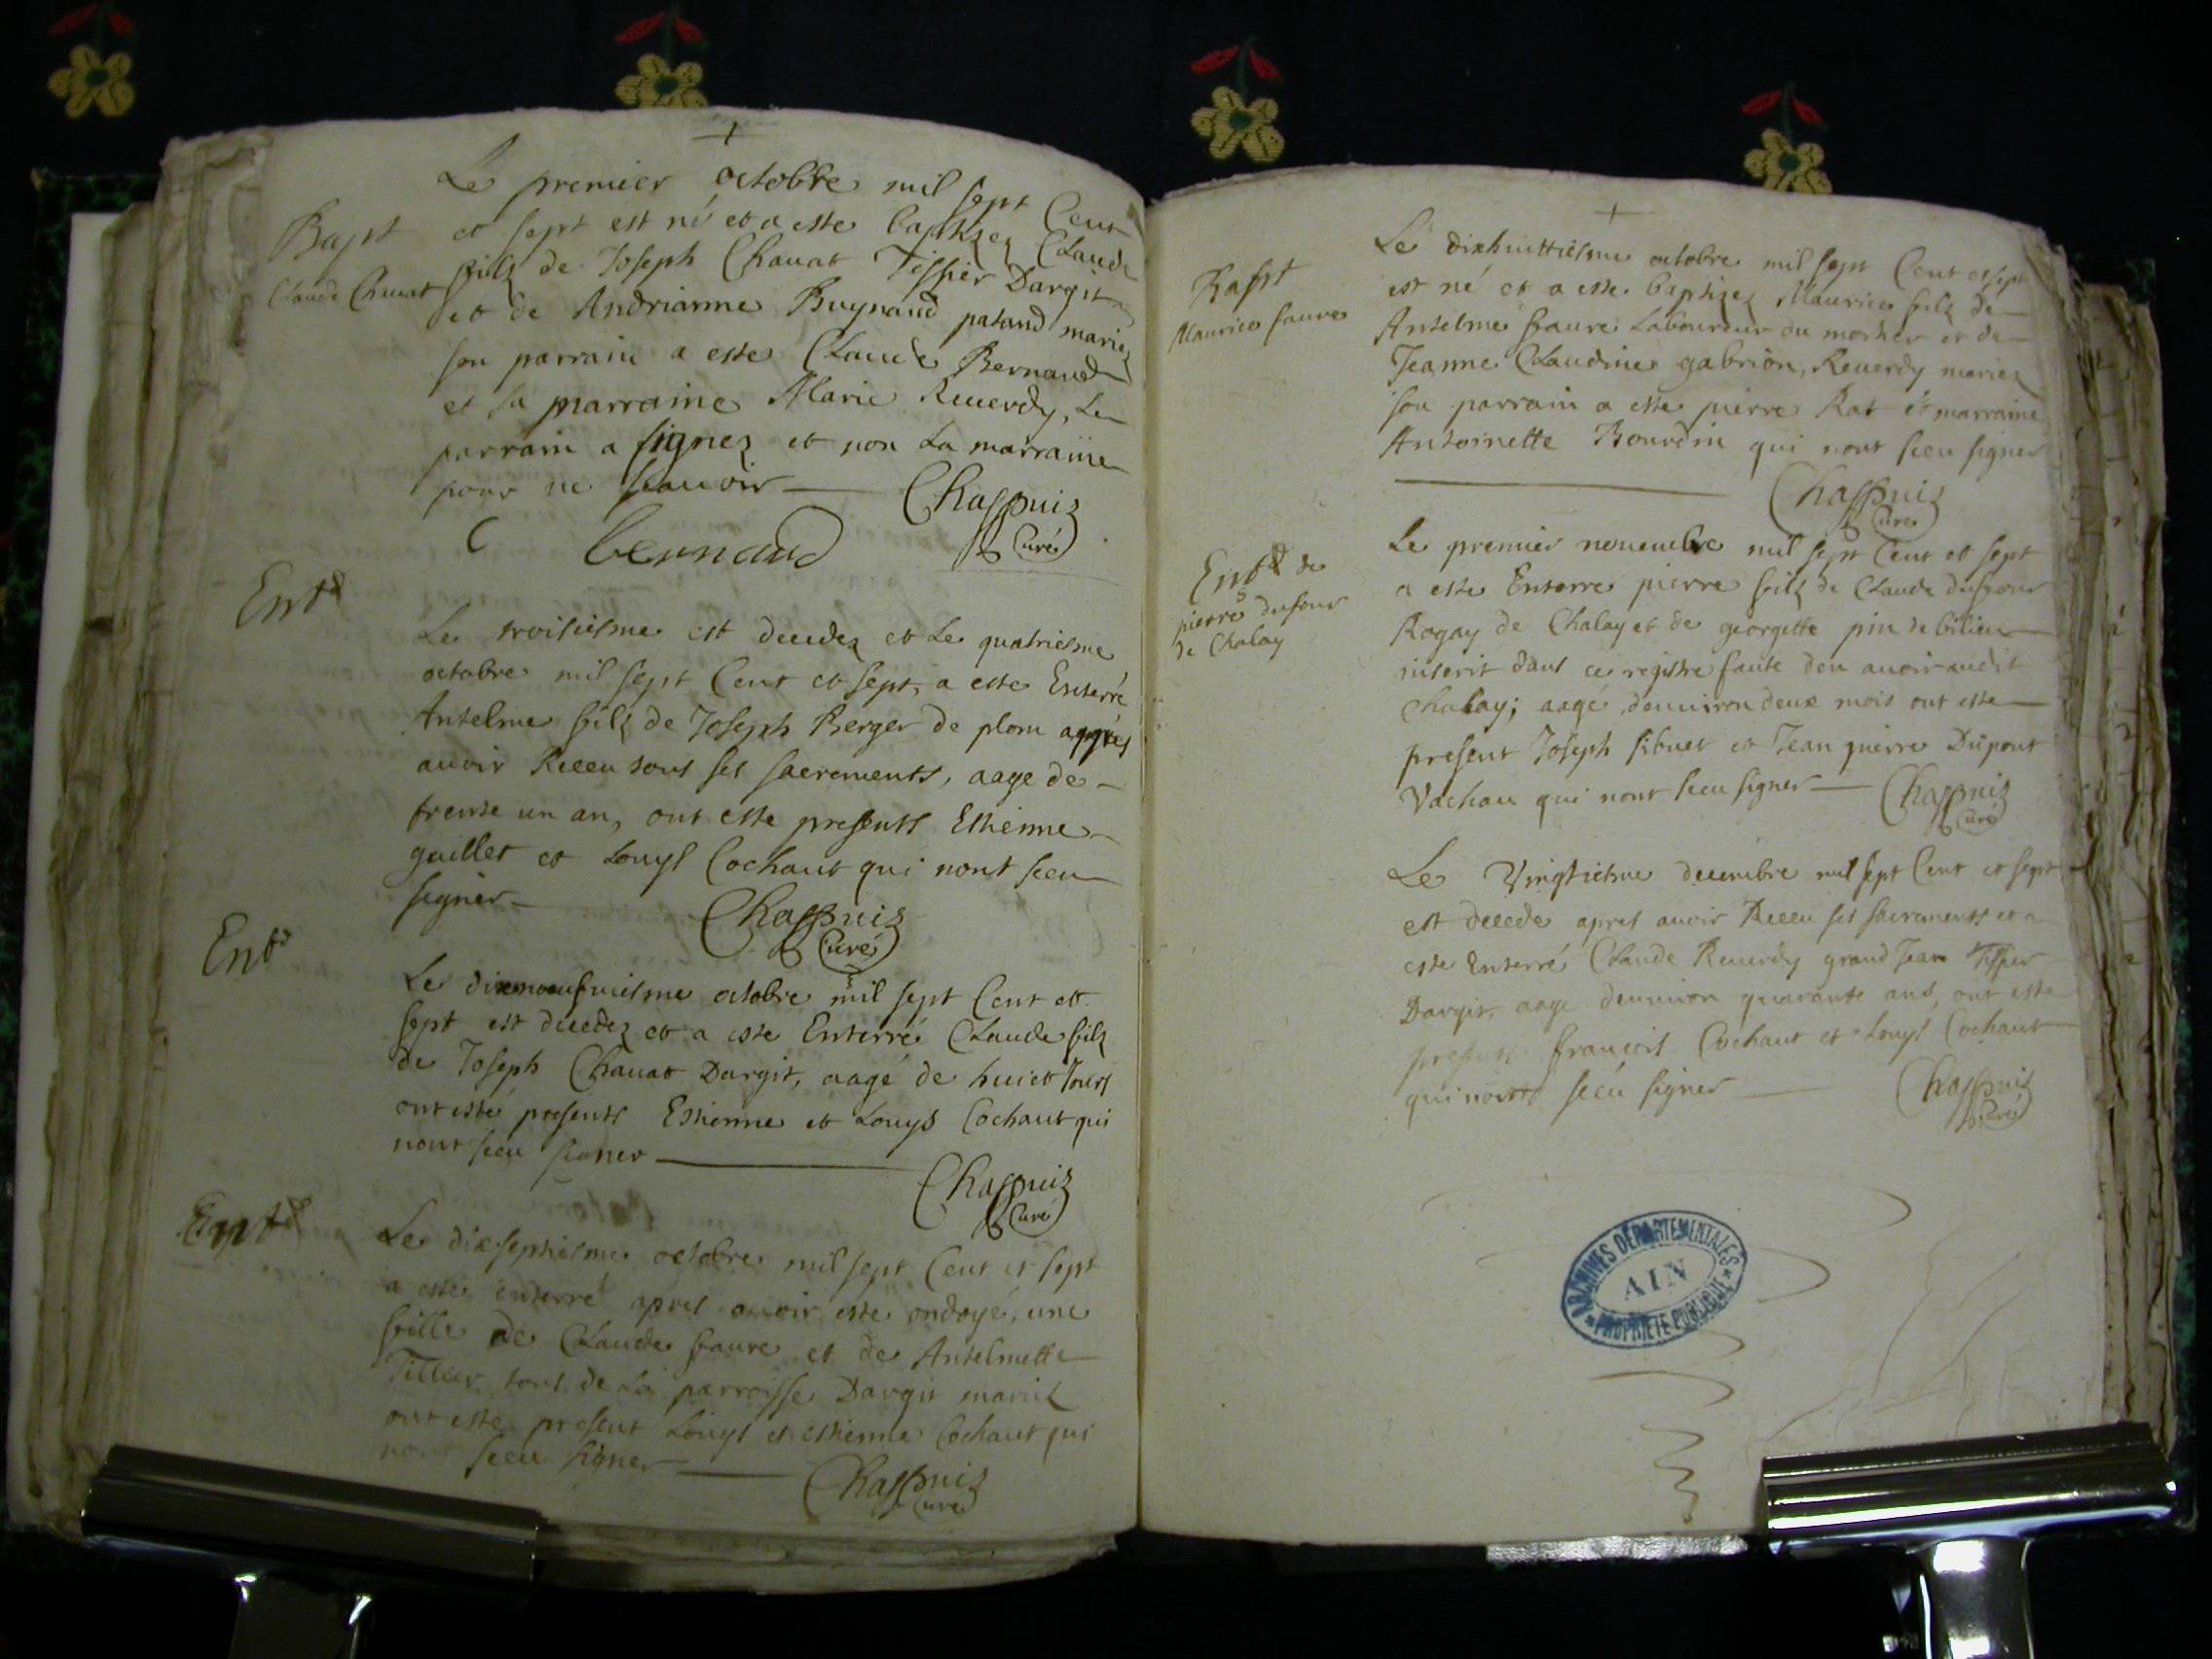 Le premier octobre mil sept Cent
Bapt
Claude Chavat
et sept est né et a este baptizez Claude
filz de Joseph Chavat Tissier Dargit
et de Andrianne Buynand patand mariez
son parrain a este Claude Bernand
et sa marraine Marie Reverdy, Le
parrain a signez et non La marraine
pour ne scavoir
Chappuiz
Curé
C bernand
Ent
Le troisiesme est decedez et Le quatriesme
octobre mil sept Cent et sept, a este Enterré
Antelme filz de Joseph Berger de plom appres
avoir Receu tous ses sacrements, aage de
trente un an, ont este presents Estienne
guillet et Louys Cochaut qui nont sceu
signer
Chappuiz
Curé
Ent
Le octobre mil sept Cent et
sept est decedez et a este Enterré Claude filz
de Joseph Chavat Dargit, aagé de huict Jours
ont esté presents Estienne et Louys Cochaut qui
nont sceu signer
Chappuiz
Curé
Ent
Le dixseptiesme octobre mil sept Cent et sept
a esté enterré apres avoir este ondoyé, une
fille de Claude faure et de Antelmette
Tillier tous de La parroisse Dargit mariez
ont este present Louys et estienne Cochaut qui
nont sceu signer
Chappuiz
Curé
Bapt
Maurice faure
Le dixhuittiesme octobre mil sept Cent et sept
est né et a este baptizez Maurice filz de
Antelme faure Laboureur du et de
Jeanne Claudine gabrion, Reverdy mariez
son parrain a este pierre Rat et marraine
Antoinette Bourdin qui nont sceu signer
Chappuiz
Curé
Ent de
pierre dufour
de Chalay
Le premier novembre mil sept Cent et sept
a este Enterré pierre filz de Claude dufour
Rogay de Chalay et de georgette pin de bilieu
inscrit dans ce registre faute den avoir audit
Chalay; aagé denviron deux mois ont este
present Joseph sibuet et Jean pierre Dupont
Vachau qui nont sceu signer
Chappuiz
Curé
Le Vingtiesme decembre mil sept Cent et sept
est decede apres avoir Receu ses sacrements et a
este Enterré Claude Reverdy grand Jean Tissier
Dargit, aage denviron quarante ans, ont este
present francois Cochaut et Louys Cochaut
qui nont sceu signer
Chappuiz
Curé
ARCHIVES DÉPARTEMENTALES
AIN
PROPRIÉTÉ PUBLIQUE